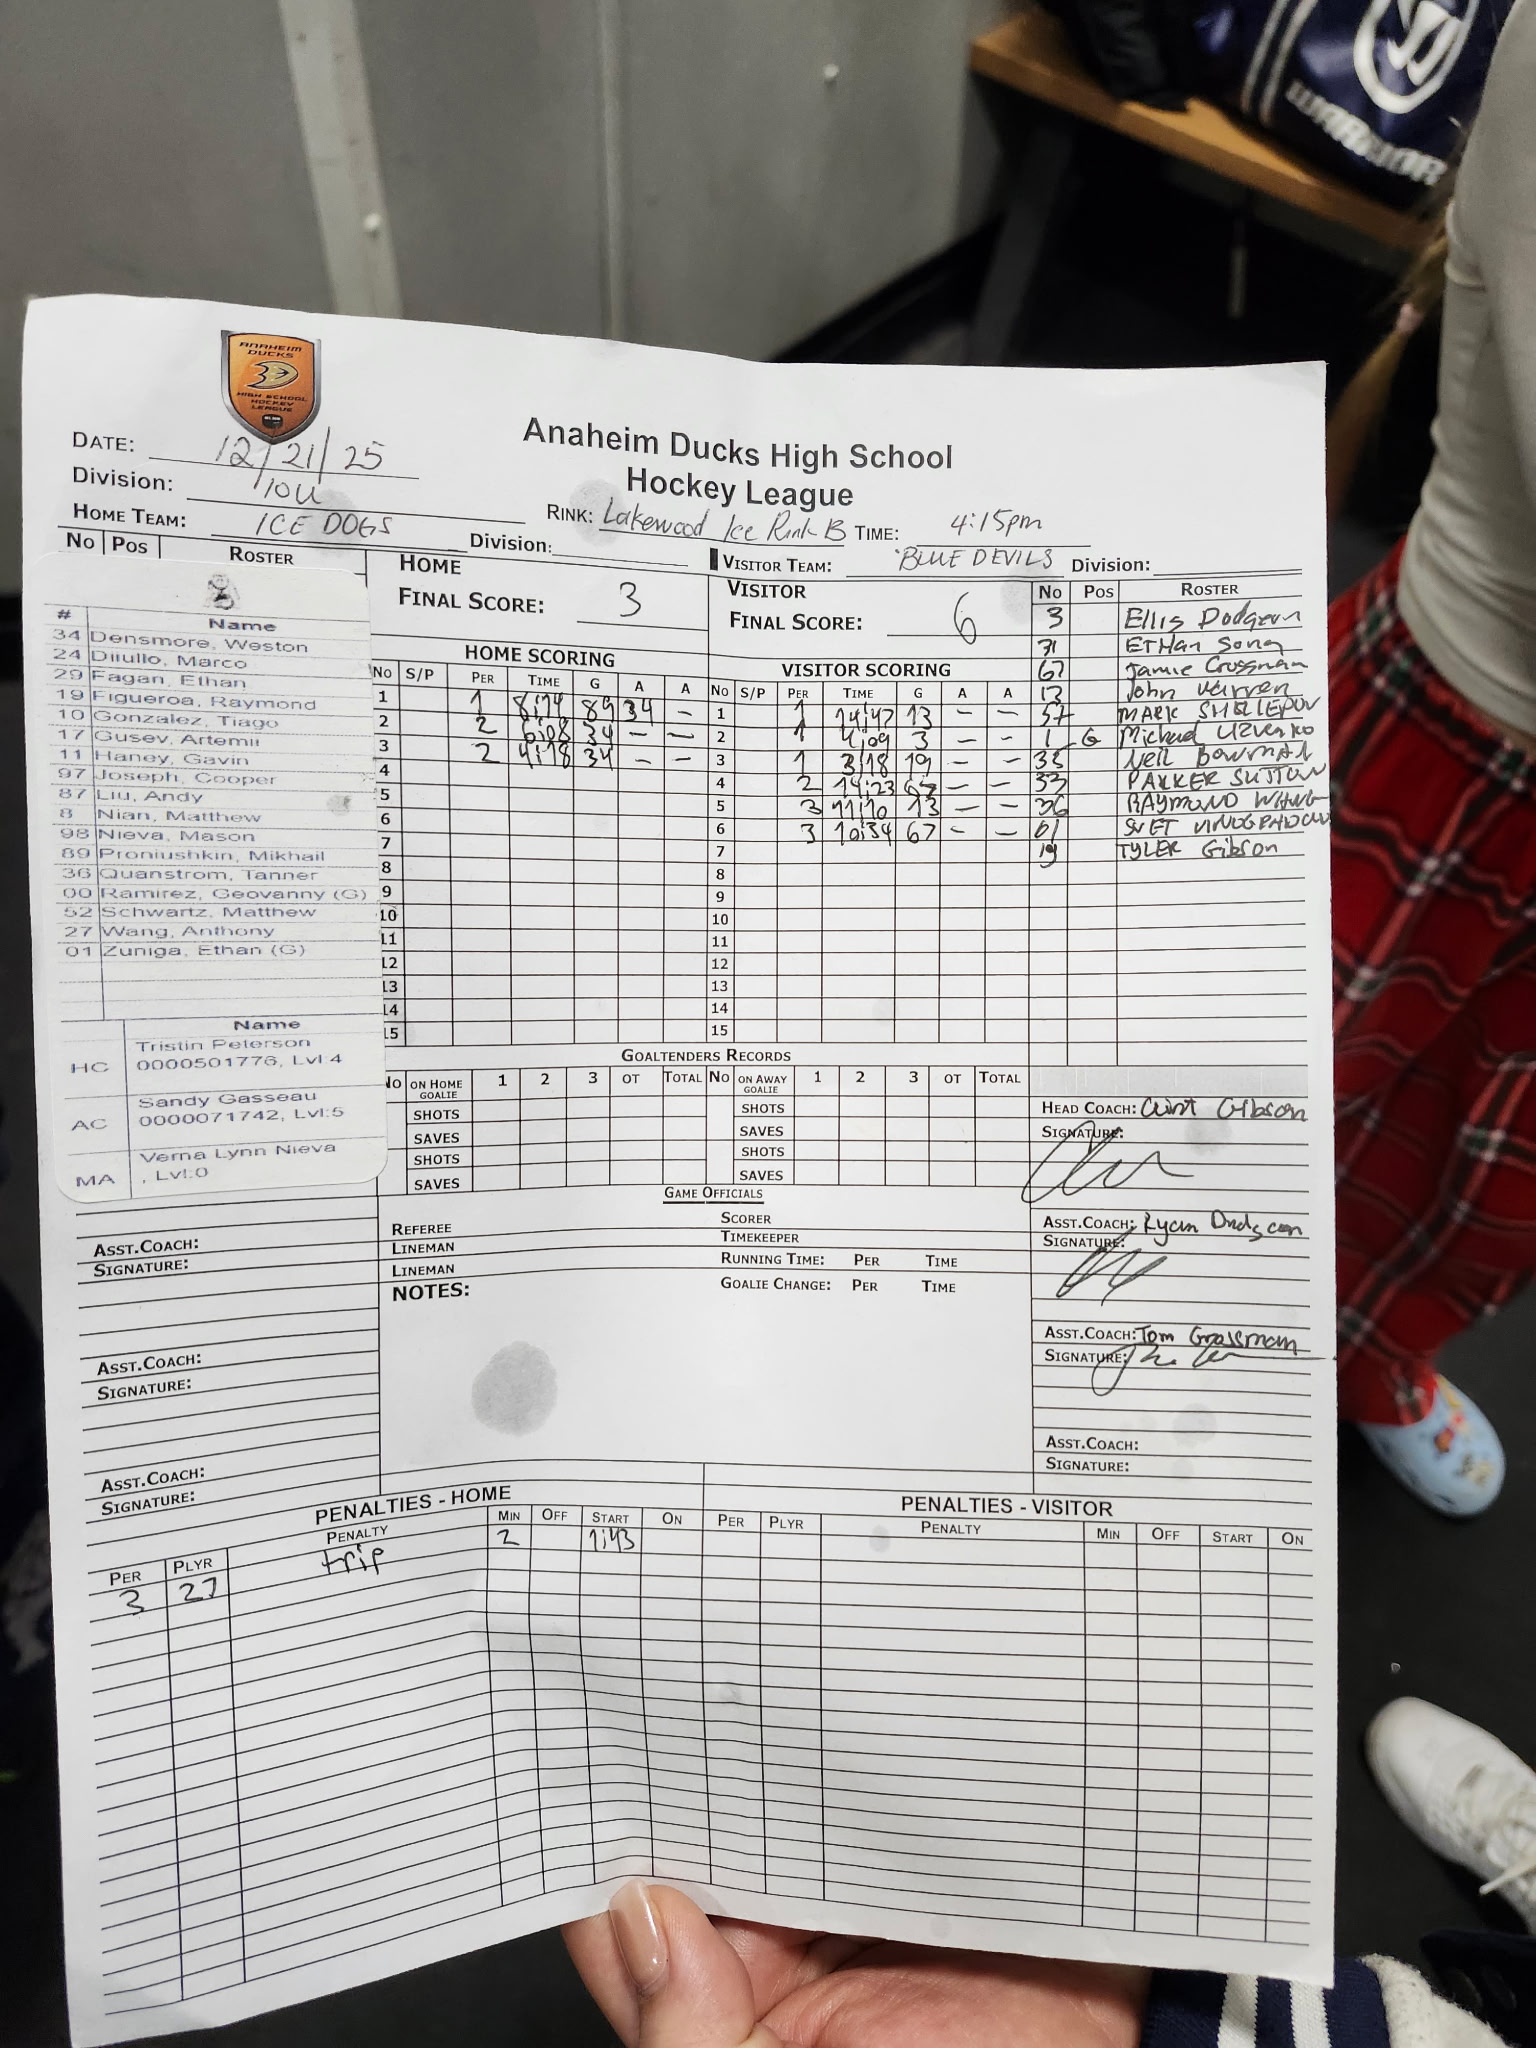 WARRIOR
ANAHEIM
DUCKS
HIGH SCHOOL
HOCKEY
LEAGUE
Anaheim Ducks High School
Hockey League
DATE: 12/21/25
Division: 10U
HOME TEAM: ICE DOGS Division:
RINK: Lakewood Ice Rink B TIME: 4:15pm
VISITOR TEAM: BLUE DEVILS Division:
No Pos ROSTER
# Name
34 Densmore, Weston
24 Ditullo, Marco
29 Fagan, Ethan
19 Figueroa, Raymond
10 Gonzalez, Tiago
17 Gusev, Artemii
11 Haney, Gavin
97 Joseph, Cooper
87 Liu, Andy
8 Nian, Matthew
98 Nieva, Mason
89 Proniushkin, Mikhail
36 Quanstrom, Tanner
00 Ramirez, Geovanny (G)
52 Schwartz, Matthew
27 Wang, Anthony
01 Zuniga, Ethan (G)
Name
HC Tristin Peterson
0000501776, Lvl:4
AC Sandy Gasseau
0000071742, Lvl:5
MA Verna Lynn Nieva
, Lvl:0
ASST.COACH:
SIGNATURE:
ASST.COACH:
SIGNATURE:
ASST.COACH:
SIGNATURE:
HOME
FINAL SCORE: 3
HOME SCORING
No S/P PER TIME G A A
1 1 8:14 89 34 –
2 2 6:08 34 – –
3 2 4:18 34 – –
4
5
6
7
8
9
10
11
12
13
14
15
VISITOR
FINAL SCORE: 6
VISITOR SCORING
No S/P PER TIME G A A
1 1 14:47 13 – –
2 1 4:09 3 – –
3 1 3:18 19 – –
4 2 14:23 67 – –
5 3 11:10 13 – –
6 3 10:34 67 – –
7
8
9
10
11
12
13
14
15
No Pos ROSTER
3 Ellis Dodgson
71 ETHan Song
67 Jamie Grossman
13 John Warren
57 MARK
1 G Michael
35 Neil Bowman
33 PARKER SUTTON
36 RAYMOND
61 SVET
19 TYLER Gibson
GOALTENDERS RECORDS
No ON HOME GOALIE 1 2 3 OT TOTAL No ON AWAY GOALIE 1 2 3 OT TOTAL
SHOTS SHOTS
SAVES SAVES
SHOTS SHOTS
SAVES SAVES
GAME OFFICIALS
REFEREE SCORER
LINEMAN TIMEKEEPER
LINEMAN RUNNING TIME: PER TIME
NOTES: GOALIE CHANGE: PER TIME
HEAD COACH: Clint Gibson
SIGNATURE:
ASST.COACH: Ryan Dodgson
SIGNATURE:
ASST.COACH: Tom Grossman
SIGNATURE:
ASST.COACH:
SIGNATURE:
PENALTIES - HOME
PER PLYR PENALTY MIN OFF START ON
3 27 trip 2 1:43
PENALTIES - VISITOR
PER PLYR PENALTY MIN OFF START ON